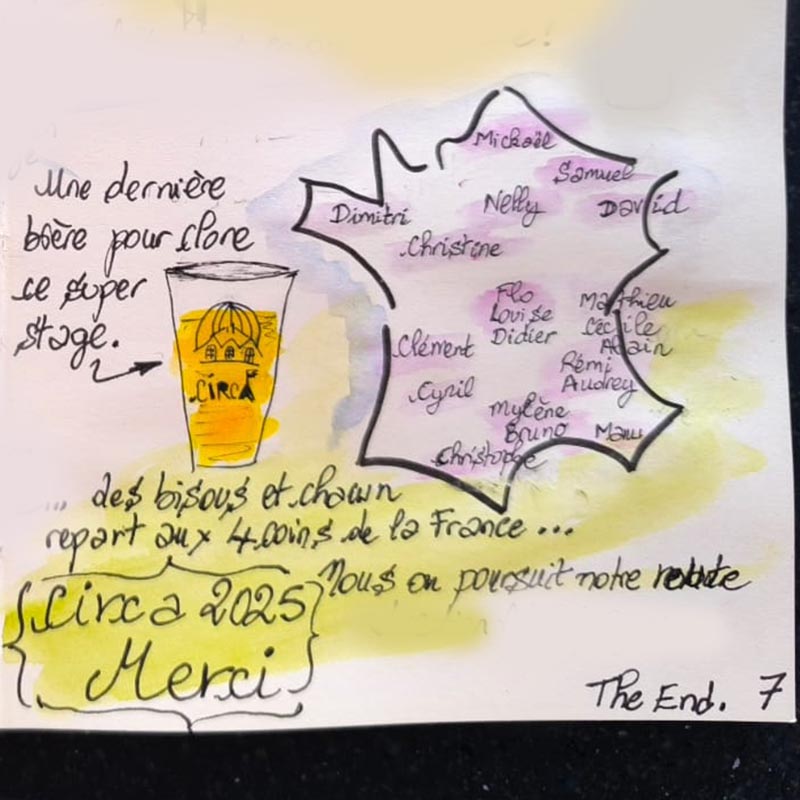 Une dernière
bière pour clore
ce super
stage.
CIRCA
Mickaël
Samuel
Nelly
David
Dimitri
Christine
Flo
Louise
Didier
Matthieu
Cécile
Alain
Clément
Rémi
Audrey
Cyril
Mylène
Bruno
Manu
Christophe
... des bisous et chacun
repart aux 4 coins de la France ...
Nous on poursuit notre
Circa 2025
Merci
The End. 7